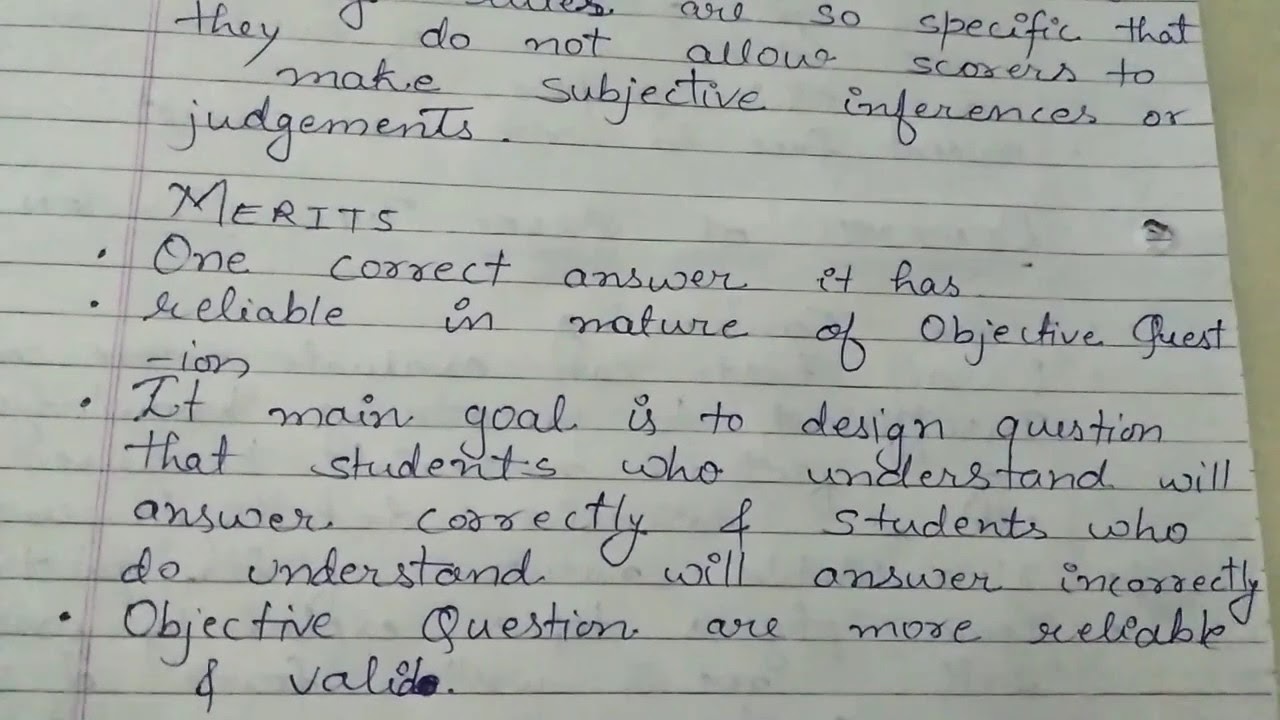 are so specific that
they do not allow scorers to
make subjective inferences or
judgements.
MERITS
• One correct answer it has
• reliable in nature of Objective Quest
-ion
• It main goal is to design question
that students who understand will
answer correctly & students who
do understand will answer incorrectly
• Objective Question are more reliable
& valid.